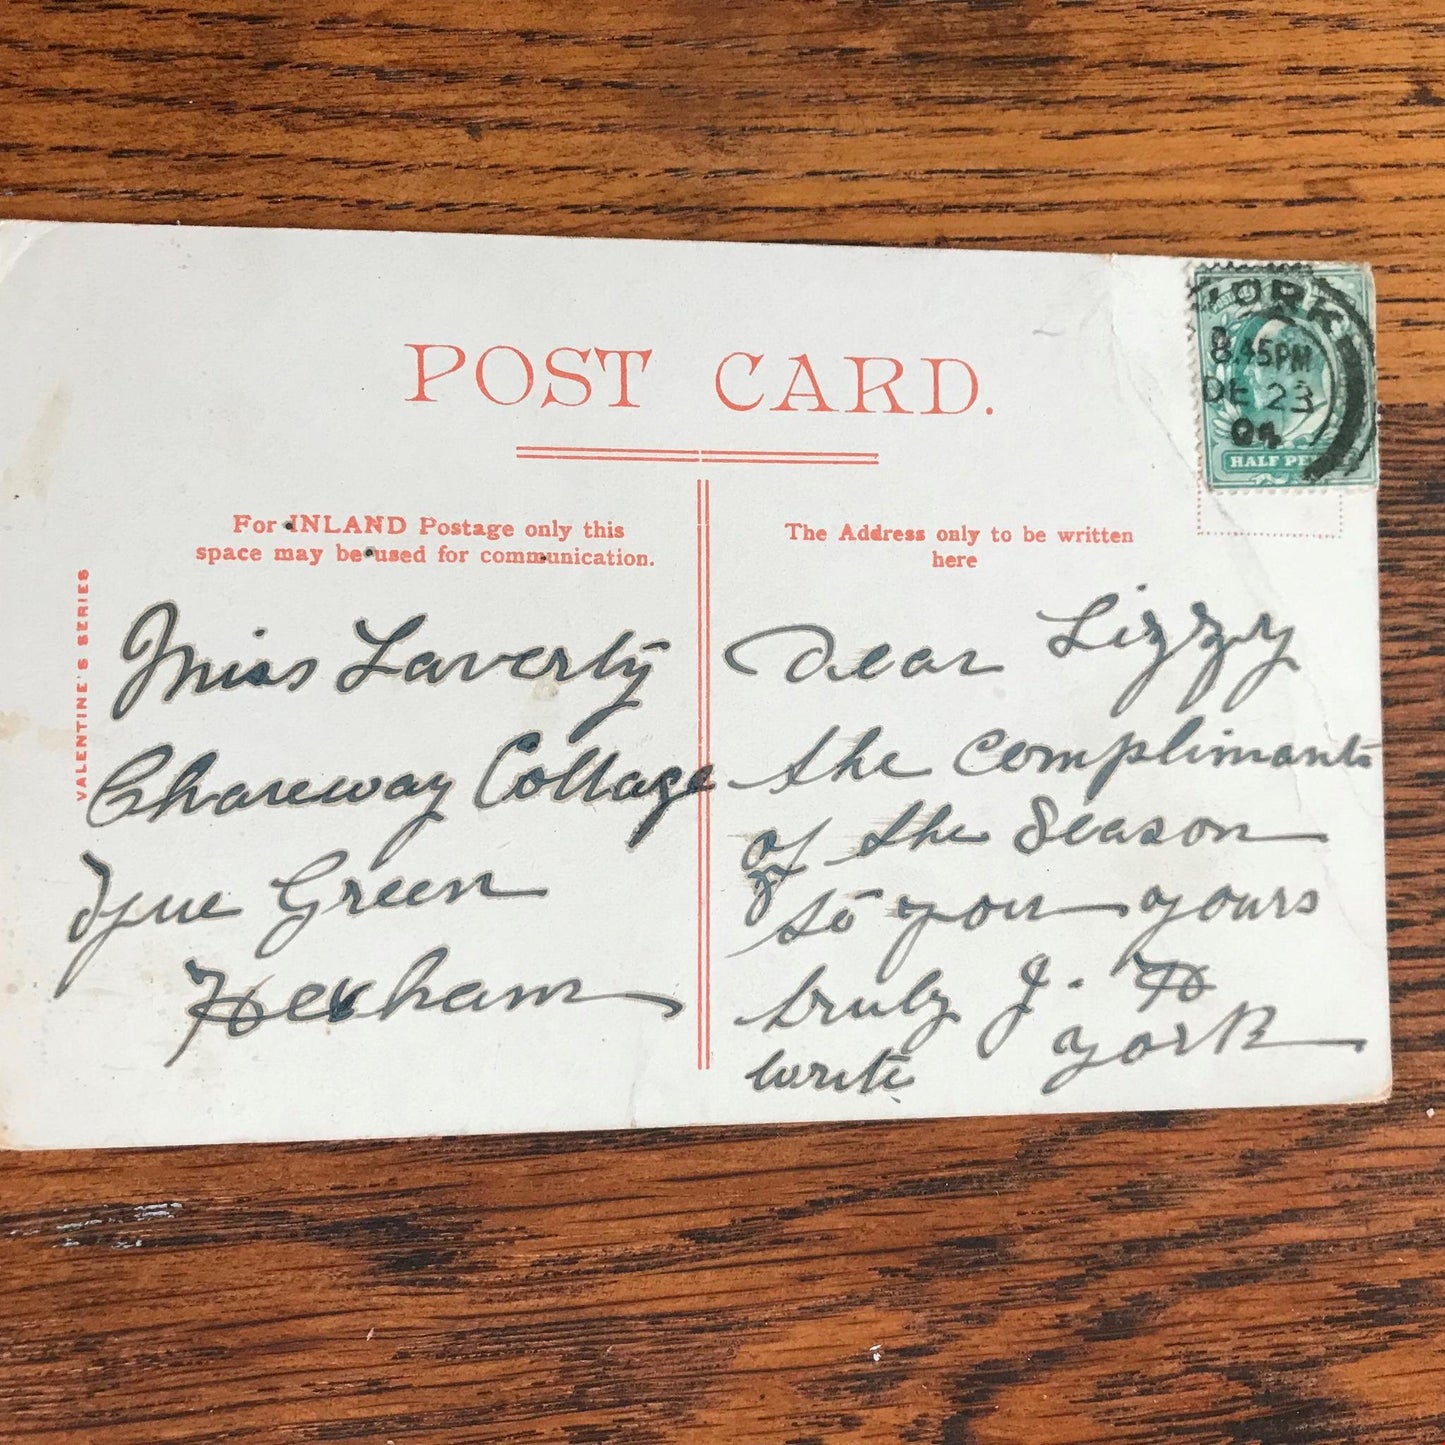 POST CARD.
YORK
8.45PM
DE 23
04
HALF PE
For INLAND Postage only this
space may be used for communication.
The Address only to be written
here
VALENTINE'S SERIES
Miss Laverty
Chareway Cottage
Tyne Green
Hexham
Dear Lizzy
the complimants
of the Season
to you yours
truly J. H
write York